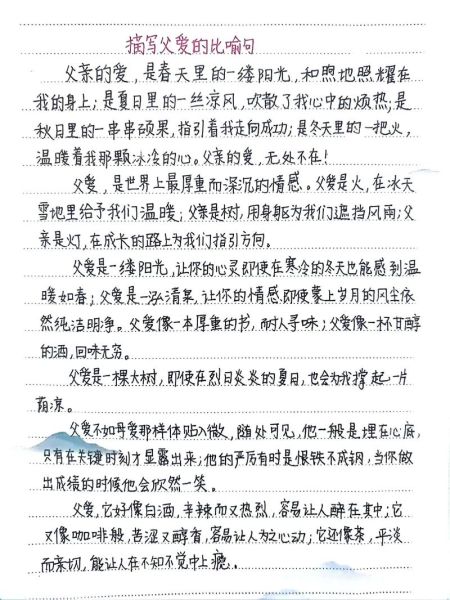 描写父爱的比喻句
父亲的爱，是春天里的一缕阳光，和煦地照耀在
我的身上；是夏日里的一丝凉风，吹散了我心中的烦热；是
秋日里的一串串硕果，指引着我走向成功；是冬天里的一把火，
温暖着我那颗冰冷的心。父亲的爱，无处不在！
父爱，是世界上最厚重而深沉的情感。父爱是火，在冰天
雪地里给予我们温暖；父亲是树，用身躯为我们遮挡风雨；父
亲是灯，在成长的路上为我们指引方向。
父爱是一缕阳光，让你的心灵即使在寒冷的冬天也能感到温
暖如春；父爱是一泓清泉，让你的情感即使蒙上岁月的风尘依
然纯洁明净。父爱像一本厚重的书，耐人寻味；父爱像一杯甘醇
的酒，回味无穷。
父爱是一棵大树，即使在烈日炎炎的夏日，也会为我撑起一片
荫凉。
父爱不如母爱那样体贴入微，随处可见，他一般是埋在心底，
只有在关键时刻才显露出来；他的严厉有时是恨铁不成钢，当你做
出成绩的时候他会欣然一笑。
父爱，它好像白酒，辛辣而又热烈，容易让人醉在其中；它
又像咖啡般，苦涩又醇香，容易让人为之心动；它还像茶，平淡
而亲切，能让人在不知不觉中上瘾。